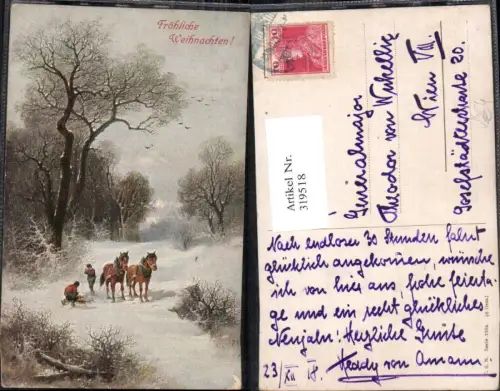 Fröhliche
Weihnachten!
Artikel Nr.
319518
Generalmajor
Theodor von
Wien VIII.
Josefstädterstraße 20.
Nach endlosen 30 Stunden Fahrt
glücklich angekommen, wünsche
ich von hier aus, frohe Feierta-
ge und ein recht glückliches
Neujahr! Herzliche Grüße
23/XII 18. Heddy von Amann